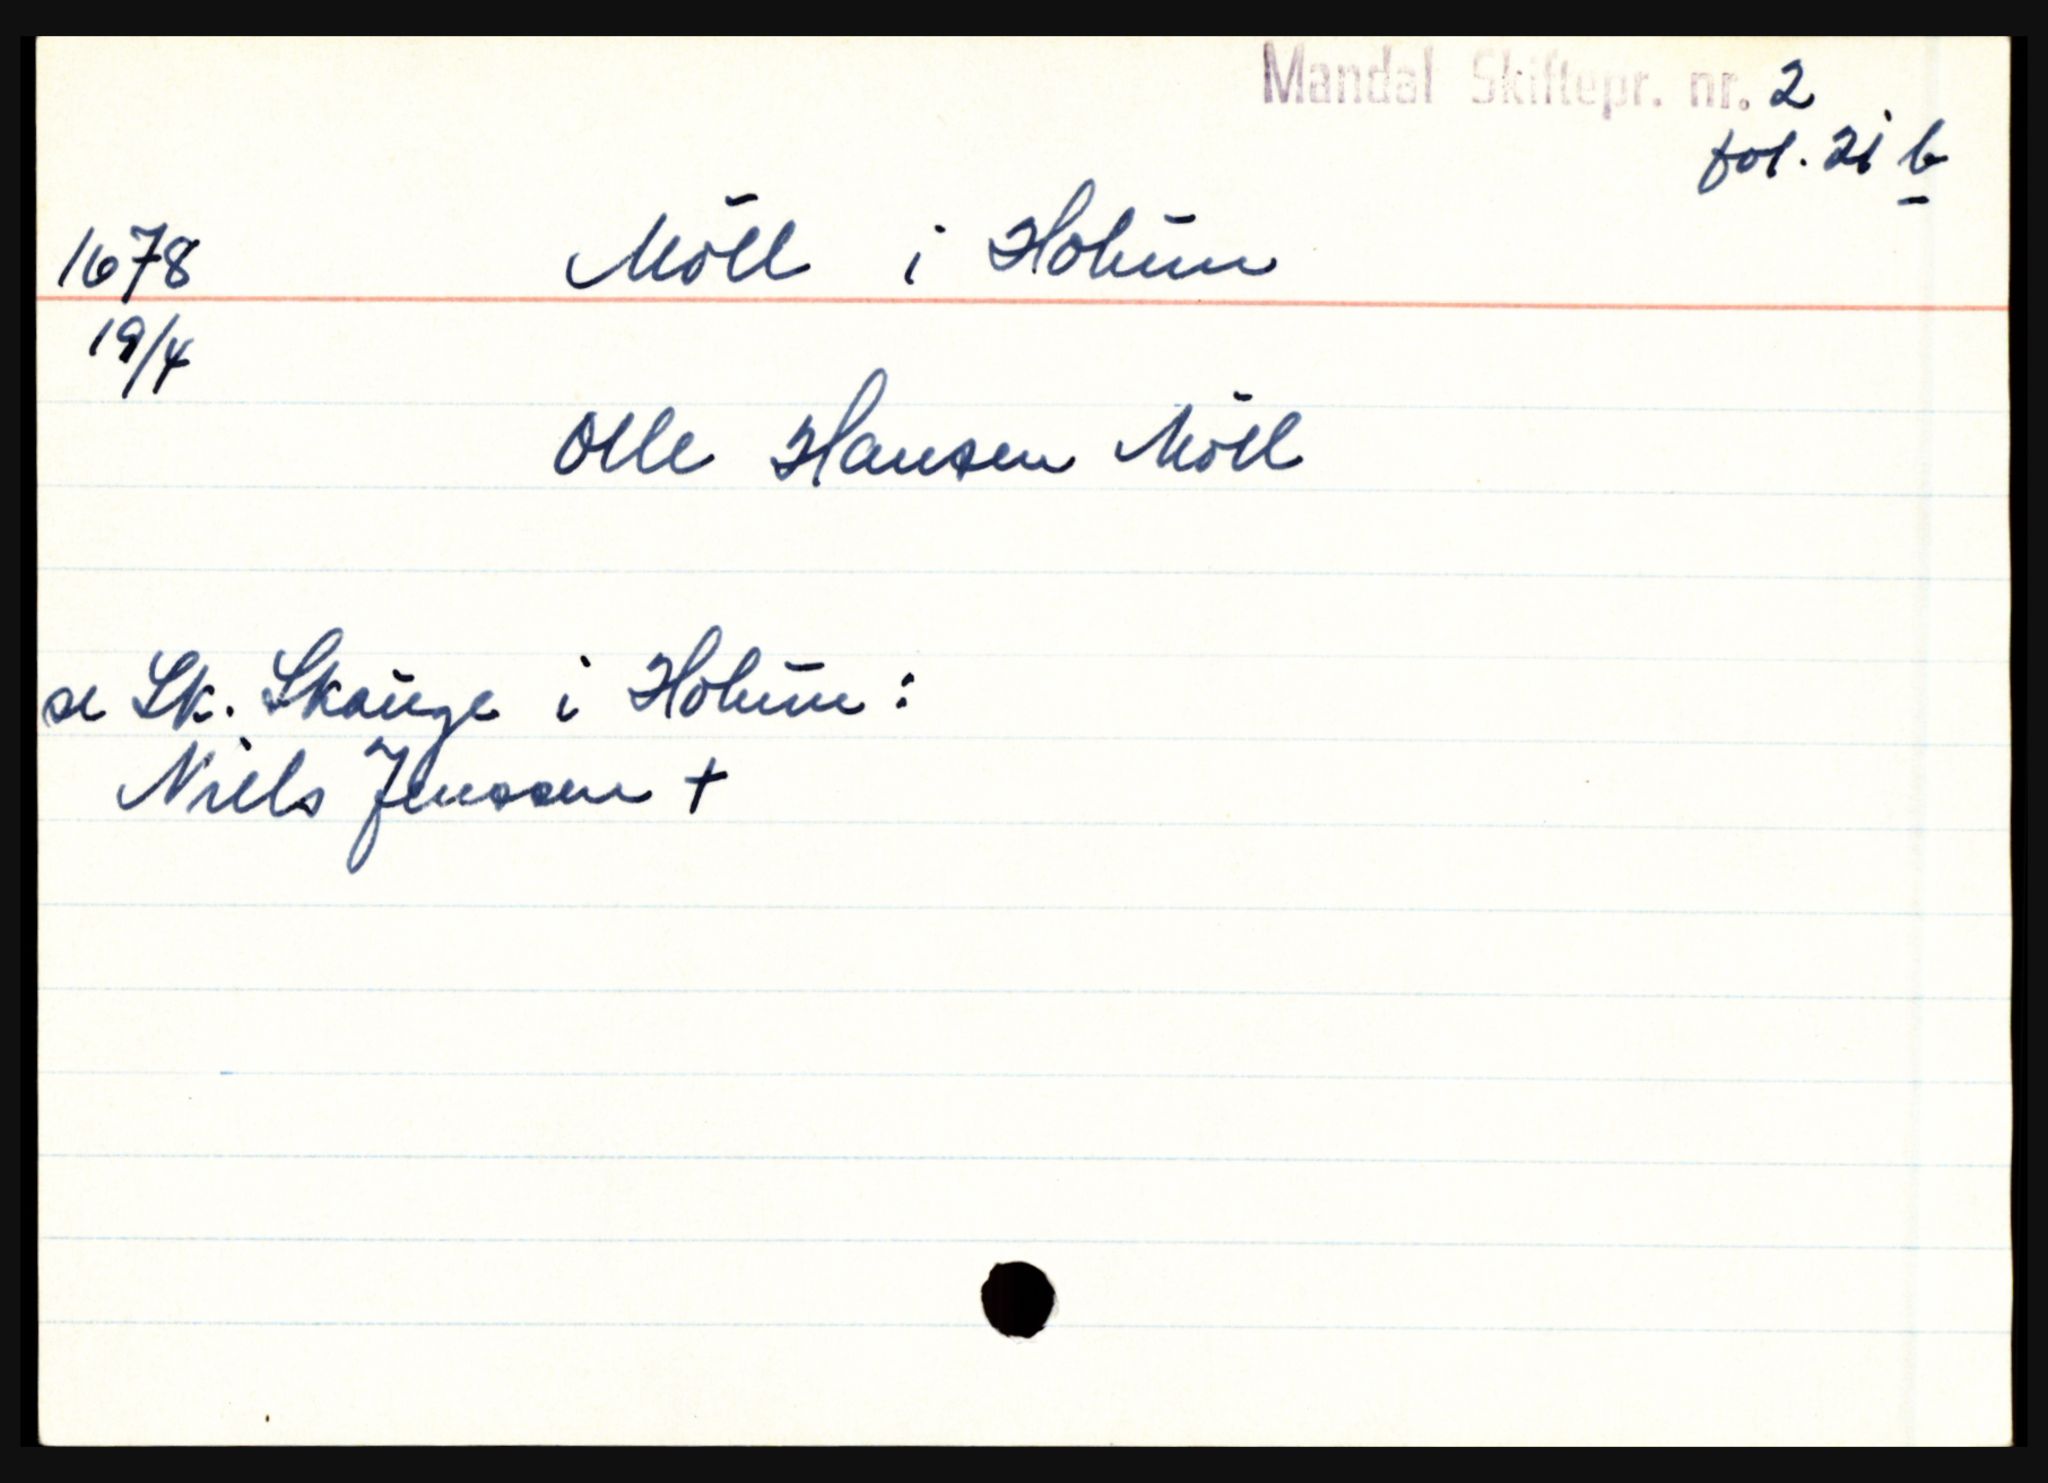 Mandal Skiftepr. nr. 2
fol. 21 b
1678 Möll i Holum
19/4
Olle Hansen Möll
se Sk. Skauge i Holum:
Niels Jenssen +